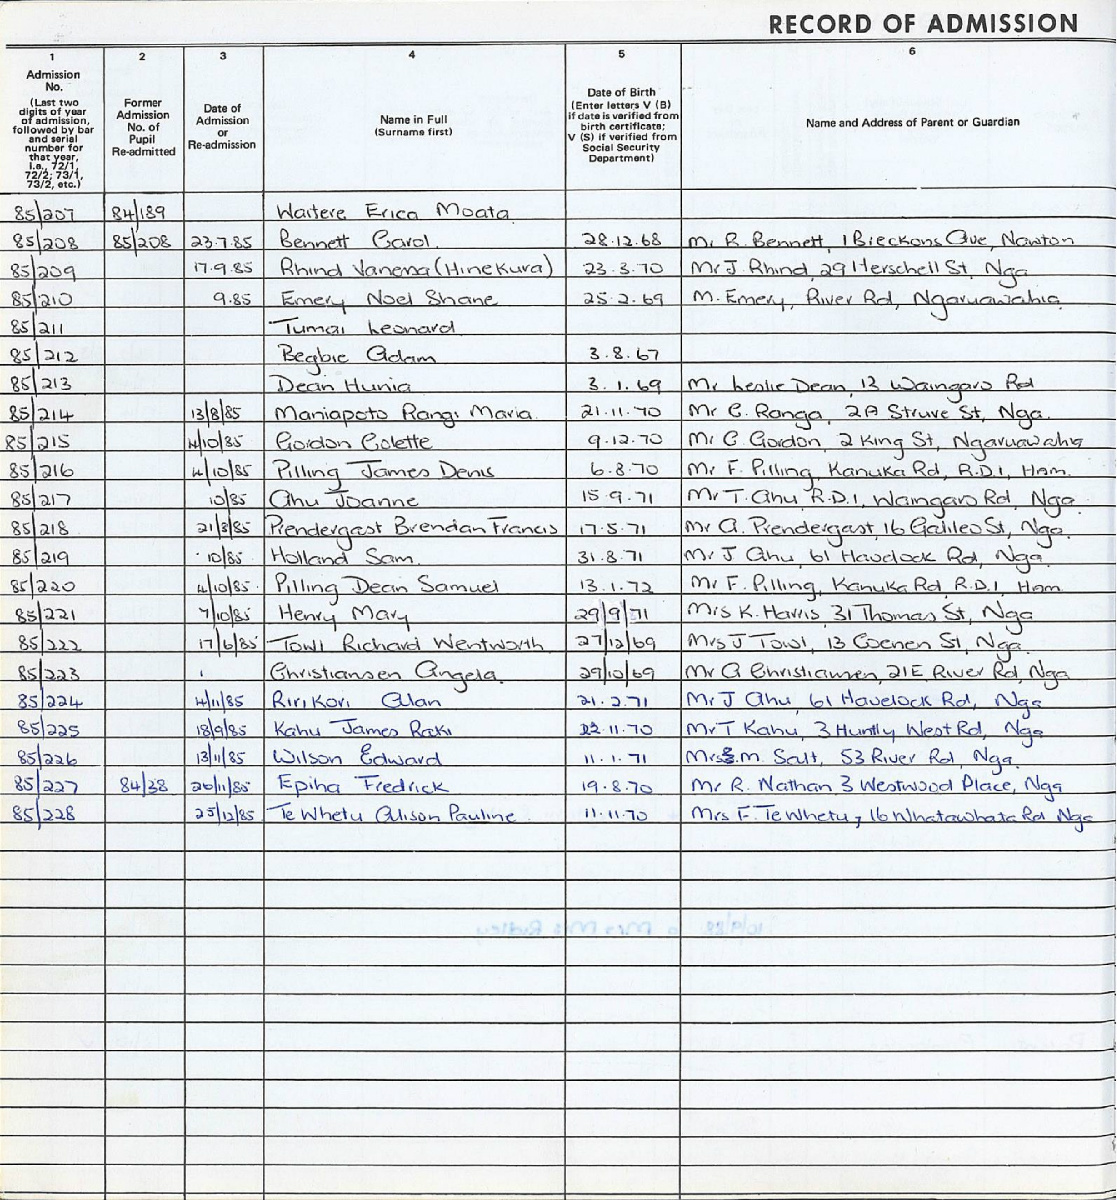 RECORD OF ADMISSION
1 2 3 4 5 6
Admission No. (Last two digits of year of admission, followed by bar and serial number for that year, i.e., 72/1, 72/2, 73/1, 73/2, etc.)
Former Admission No. of Pupil Re-admitted
Date of Admission or Re-admission
Name in Full (Surname first)
Date of Birth (Enter letters V (B) if date is verified from birth certificate; V (S) if verified from Social Security Department)
Name and Address of Parent or Guardian
85/207 84/189 Waitere Erica Moata
85/208 85/208 23.7.85 Bennett Carol 28.12.68 Mr R. Bennett, 1 Bieckons Ave, Nawton
85/209 17.9.85 Rhind Vanessa (Hinekura) 23.3.70 Mr J. Rhind, 29 Herschell St, Nga
85/210 9.85 Emery Noel Shane 25.2.69 M. Emery, River Rd, Ngaruawahia
85/211 Tumai Leonard
85/212 Begbie Adam 3.8.67
85/213 Dean Hunia 3.1.69 Mr Leslie Dean, 13 Waingaro Rd
85/214 13/8/85 Maniapoto Rangi Maria 21.11.70 Mr C. Ranga, 2A Struve St, Nga.
85/215 /10/85 Gordon Colette 9.12.70 Mr C. Gordon, 2 King St, Ngaruawahia
85/216 4/10/85 Pilling James Denis 6.8.70 Mr F. Pilling, Kanuka Rd, R.D.1, Ham.
85/217 10/85 Ahu Joanne 15.9.71 Mr T. Ahu R.D.1, Waingaro Rd, Nga
85/218 21/8/85 Prendergast Brendan Francis 17.5.71 Mr A. Prendergast, 16 Galileo St, Nga.
85/219 10/85 Holland Sam 31.8.71 Mr J Ahu, 61 Havelock Rd, Nga.
85/220 4/10/85 Pilling Dean Samuel 13.1.72 Mr F. Pilling, Kanuka Rd, R.D.1, Ham
85/221 7/10/85 Henry Mary 29/9/71 Mrs K. Harris 31 Thomas St, Nga
85/222 17/6/85 Towl Richard Wentworth 27/12/69 Mrs J Towl, 13 Coenen St, Nga.
85/223 Christiansen Angela 29/10/69 Mr A Christiansen, 21E River Rd, Nga
85/224 4/11/85 Ririkori Alan 21.2.71 Mr J Ahu, 61 Havelock Rd, Nga
85/225 18/9/85 Kahu James Raki 22.11.70 Mr T Kahu, 3 Huntly West Rd, Nga
85/226 13/11/85 Wilson Edward 11.1.71 Mrs M. Salt, 53 River Rd, Nga.
85/227 84/38 26/11/85 Epiha Fredrick 19.8.70 Mr R. Nathan 3 Westwood Place, Nga
85/228 25/12/85 Te Whetu Alison Pauline 11.11.70 Mrs F. Te Whetu, 16 Whatawhata Rd Nga